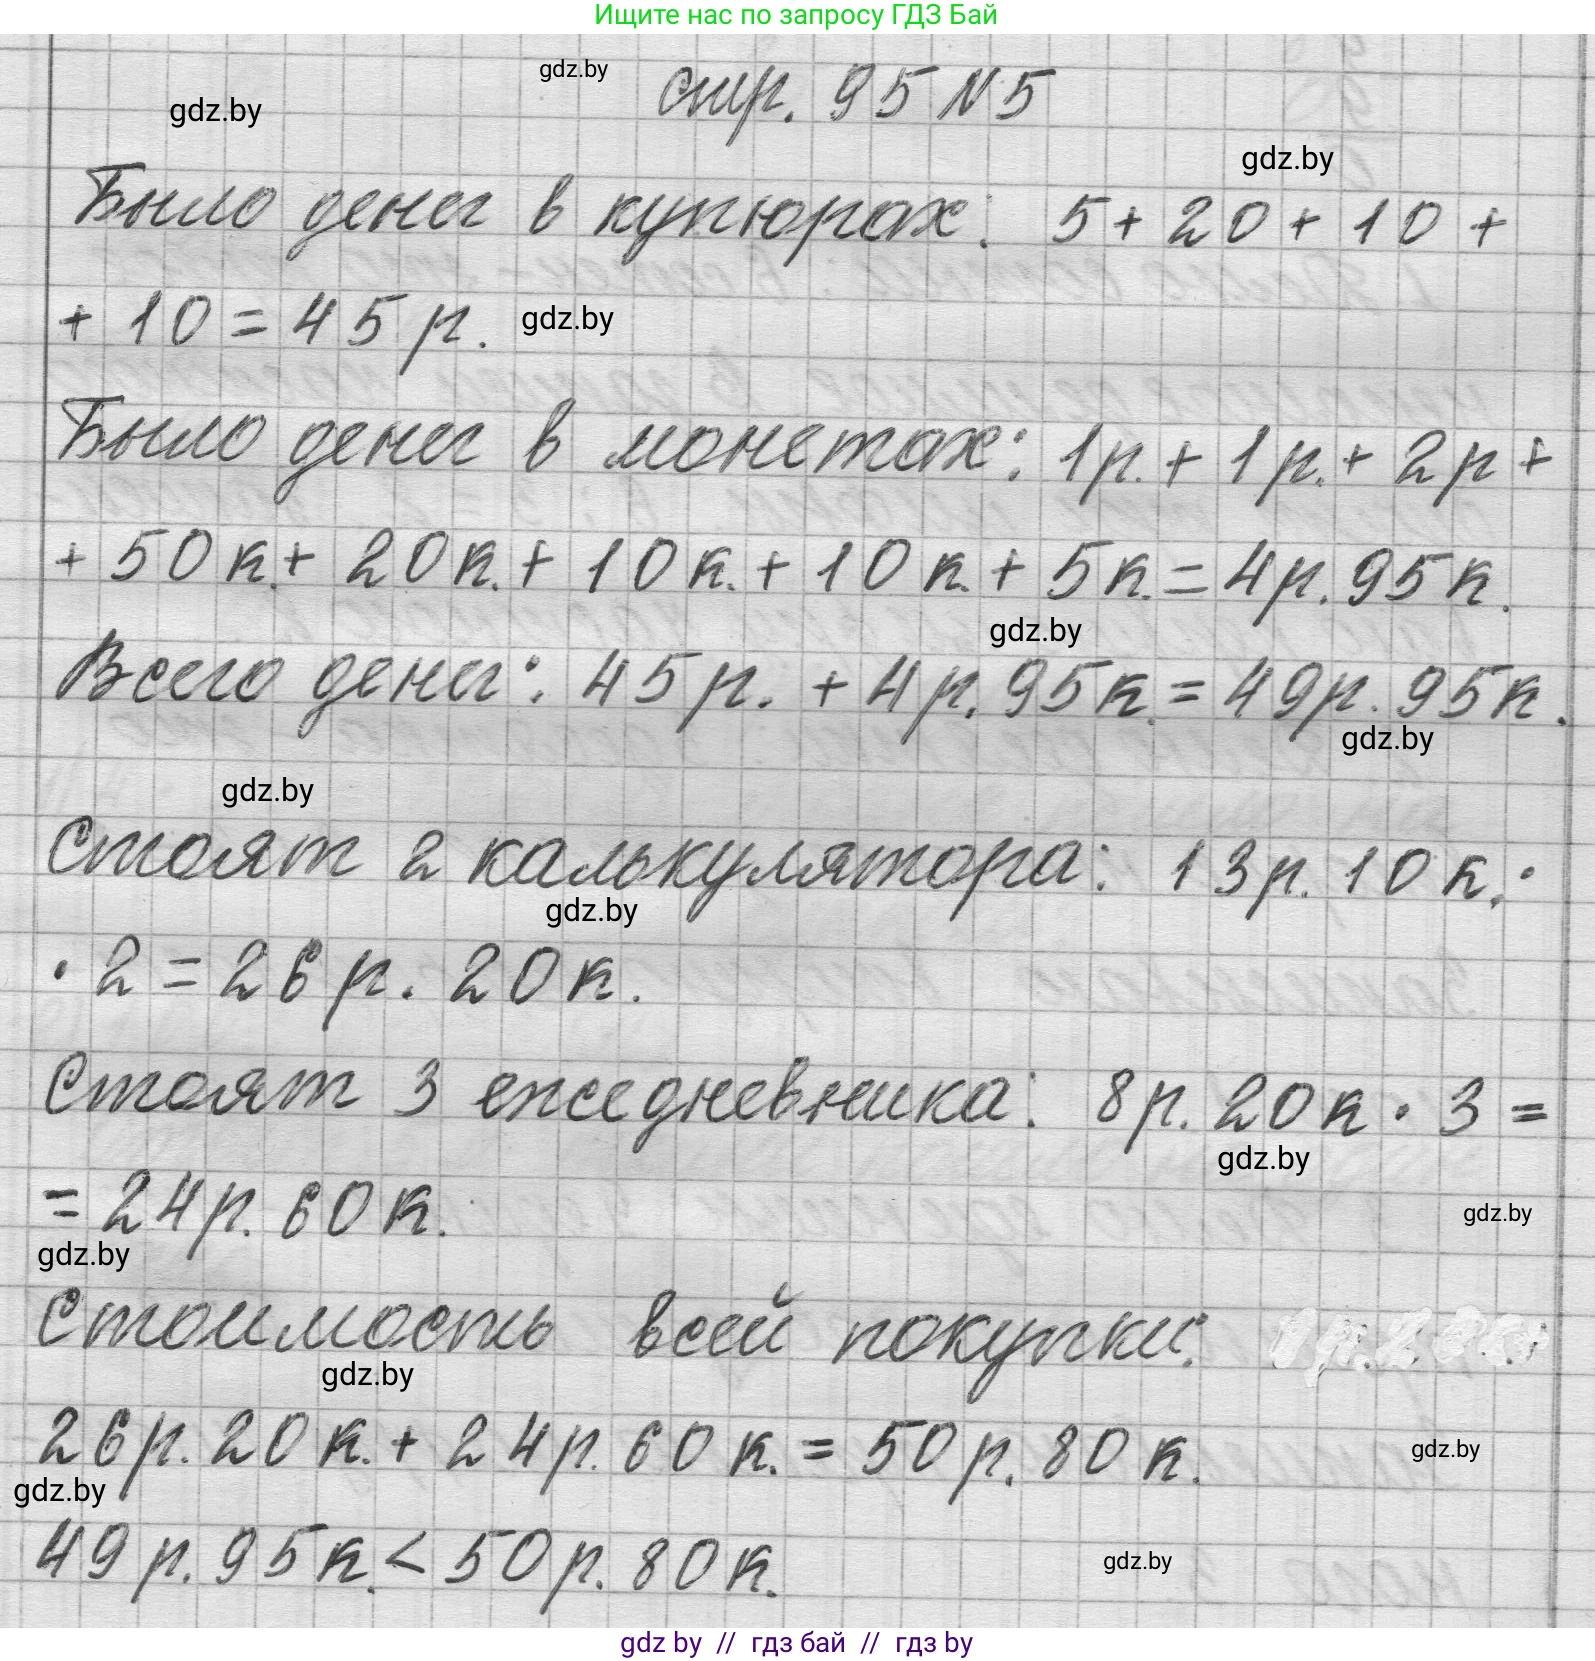 Ищите нас по запросу ГДЗ Бай
gdz.by
стр. 95 №5
gdz.by
gdz.by
Было денег в купюрах: 5 + 20 + 10 +
+ 10 = 45 р.
gdz.by
Было денег в монетах: 1р. + 1р. + 2р +
+ 50к. + 20к. + 10к. + 10к. + 5к. = 4р. 95к.
gdz.by
Всего денег: 45р. + 4р. 95к. = 49р. 95к.
gdz.by
gdz.by
Стоят 2 калькулятора: 13р. 10к. ·
gdz.by
· 2 = 26р. 20к.
Стоят 3 ежедневника: 8р. 20к · 3 =
gdz.by
= 24р. 60к.
gdz.by
gdz.by
Стоимость всей покупки:
gdz.by
26р. 20к. + 24р. 60к. = 50р. 80к.
gdz.by
gdz.by
49р. 95к. < 50р. 80к.
gdz.by
gdz by // гдз бай // гдз by